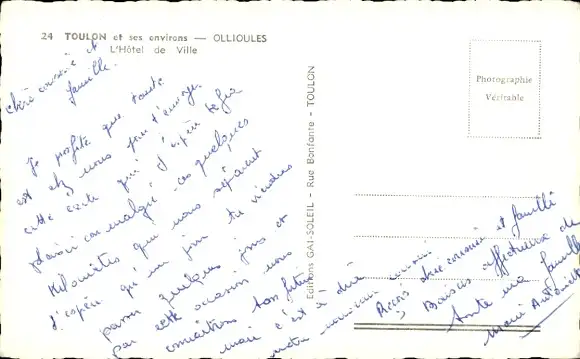 24 TOULON et ses environs — OLLIOULES
L'Hôtel de Ville
Chère cousine et
famille.
Je profite que toute
est chez nous pour t'envoyer
cette carte qui j'espère te fera
plaisir car malgré ces quelques
Kilomètres qui nous séparent
J'espère qu'un jour tu viendras
passer quelques jours et
par cette occasion nous
connaîtrons ton futur
mari c'est à dire
notre nouveau cousin
Reçois chère cousine et famille
Baisers affectueux de
toute ma famille
Marie Antoinette
Editions GAI-SOLEIL - Rue Bonfante - TOULON
Photographie
Véritable